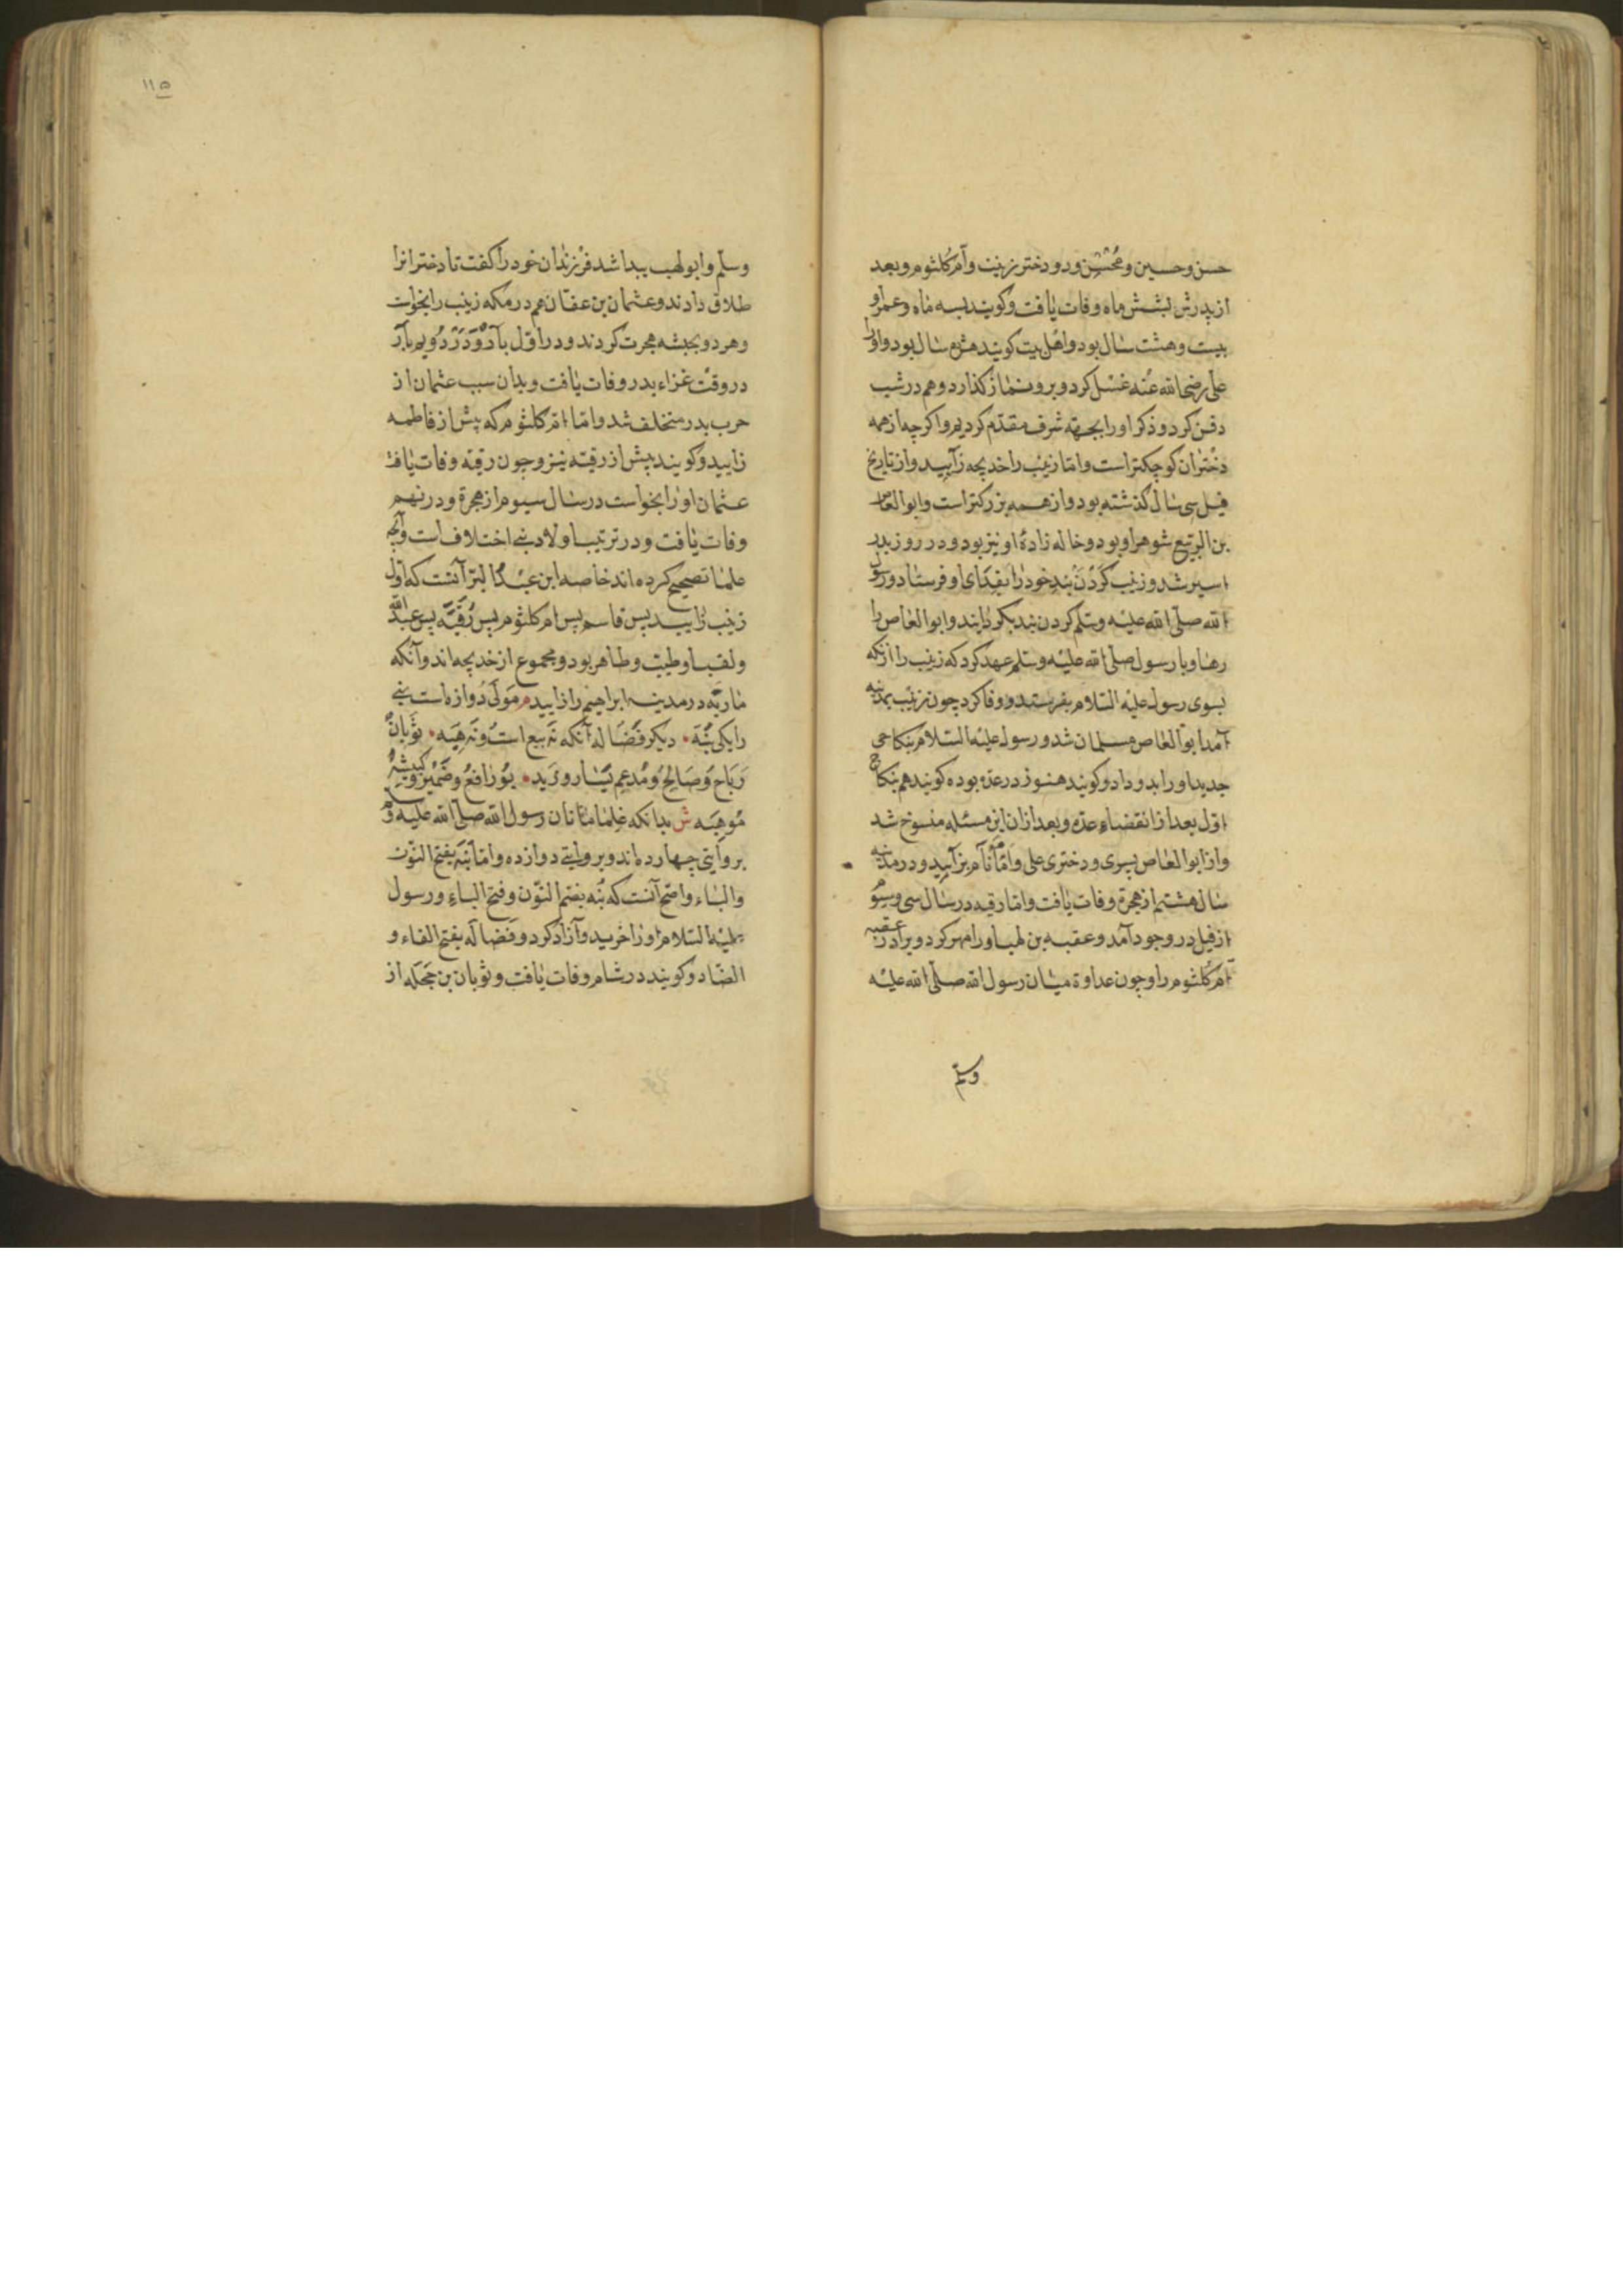 حسن و حسین و محسن و دو دختر زینب و ام کلثوم و بعد
از پدرش بشش ماه وفات یافت و کویند بسه ماه و عمر او
بیست و هشت سال بود و اهل بیت کویند هژده سال بود و او را
علی رضی الله عنه غسل کرد و برو نماز کذارد و هم در شب
دفن کرد و ذکر او را بجهة شرف مقدم کردیم و اکر چه از همه
دختران کوچکتر است و اما زینب را خدیجه زایید و از تاریخ
فیل سی سال کذشته بود و از همه بزرکتر است و ابوالعاص
بن الربیع شوهر او بود و خاله زادهٔ او نیز بود و در روز بدر
اسیر شد و زینب کردن بند خود را بفدای او فرستاد و رسول
الله صلی الله علیه وسلم کردن بند بکردانید و ابوالعاص را
رها و با رسول صلی الله علیه وسلم عهد کرد که زینب را از مکه
بسوی رسول علیه السلام بفرستد و وفا کرد چون زینب بمدینه
آمد ابوالعاص مسلمان شد و رسول علیه السلام بنکاحی
جدید او را بدو داد و کویند هنوز در عده بود و کویند هم بنکاح
اول بعد از انقضاء عده و بعد از ان این مسئله منسوخ شد
و از ابوالعاص پسری و دختری علی و امامه بزایید و در مدینه
سال هشتم از هجرة وفات یافت و اما رقیه در سال سی و سیوم
از فیل در وجود آمد و عقبه بن لهب او را مهر کرد و برادر عقبه
ام کلثوم را و چون عداوة میان رسول الله صلی الله علیه
وسلم
١١٥
وسلم و ابولهب پیدا شد فرزندان خود را کفت تا دخترانرا
طلاق دادند و عثمان بن عفان هم در مکه زینب را بخواست
و هر دو بحبشه هجرت کردند و در اول
در وقت غزاء بدر وفات یافت و بدان سبب عثمان از
حرب بدر متخلف شد و اما ام کلثوم که پیش از فاطمه
زایید و کویند پیش از رقیه نیز و چون رقیه وفات یافت
عثمان او را بخواست در سال سیوم از هجرة و در نهم
وفات یافت و در ترتیب اولاد نبی اختلاف است و آنچه
علما تصحیح کرده اند خاصه ابن عبد البر آنست که اول
زینب زایید پس قاسم پس ام کلثوم پس رقیه پس عبد الله
و لقب او طیب و طاهر بود و مجموع از خدیجه اند و آنکه
ماریه در مدینه ابراهیم را زایید م مولی دوازه است نبی
را یکی نبه دیکر فضاله آنکه نه بیع است و نه هبه ثوبان
رباح و صالح و مدعم یسار و زید بورافع و ضمیر و کبشه
موهبه ش بدانکه غلمان رسول الله صلی الله علیه وسلم
بروایتی چهارده اند و بروایتی دوازده و اما نبه بفتح النون
والباء و اصح آنست که نبه بضم النون و فتح الباء و رسول
علیه السلام او را خرید و آزاد کرد و فضاله بفتح الفاء و
الضاد و کویند در شام وفات یافت و ثوبان بن جحله از